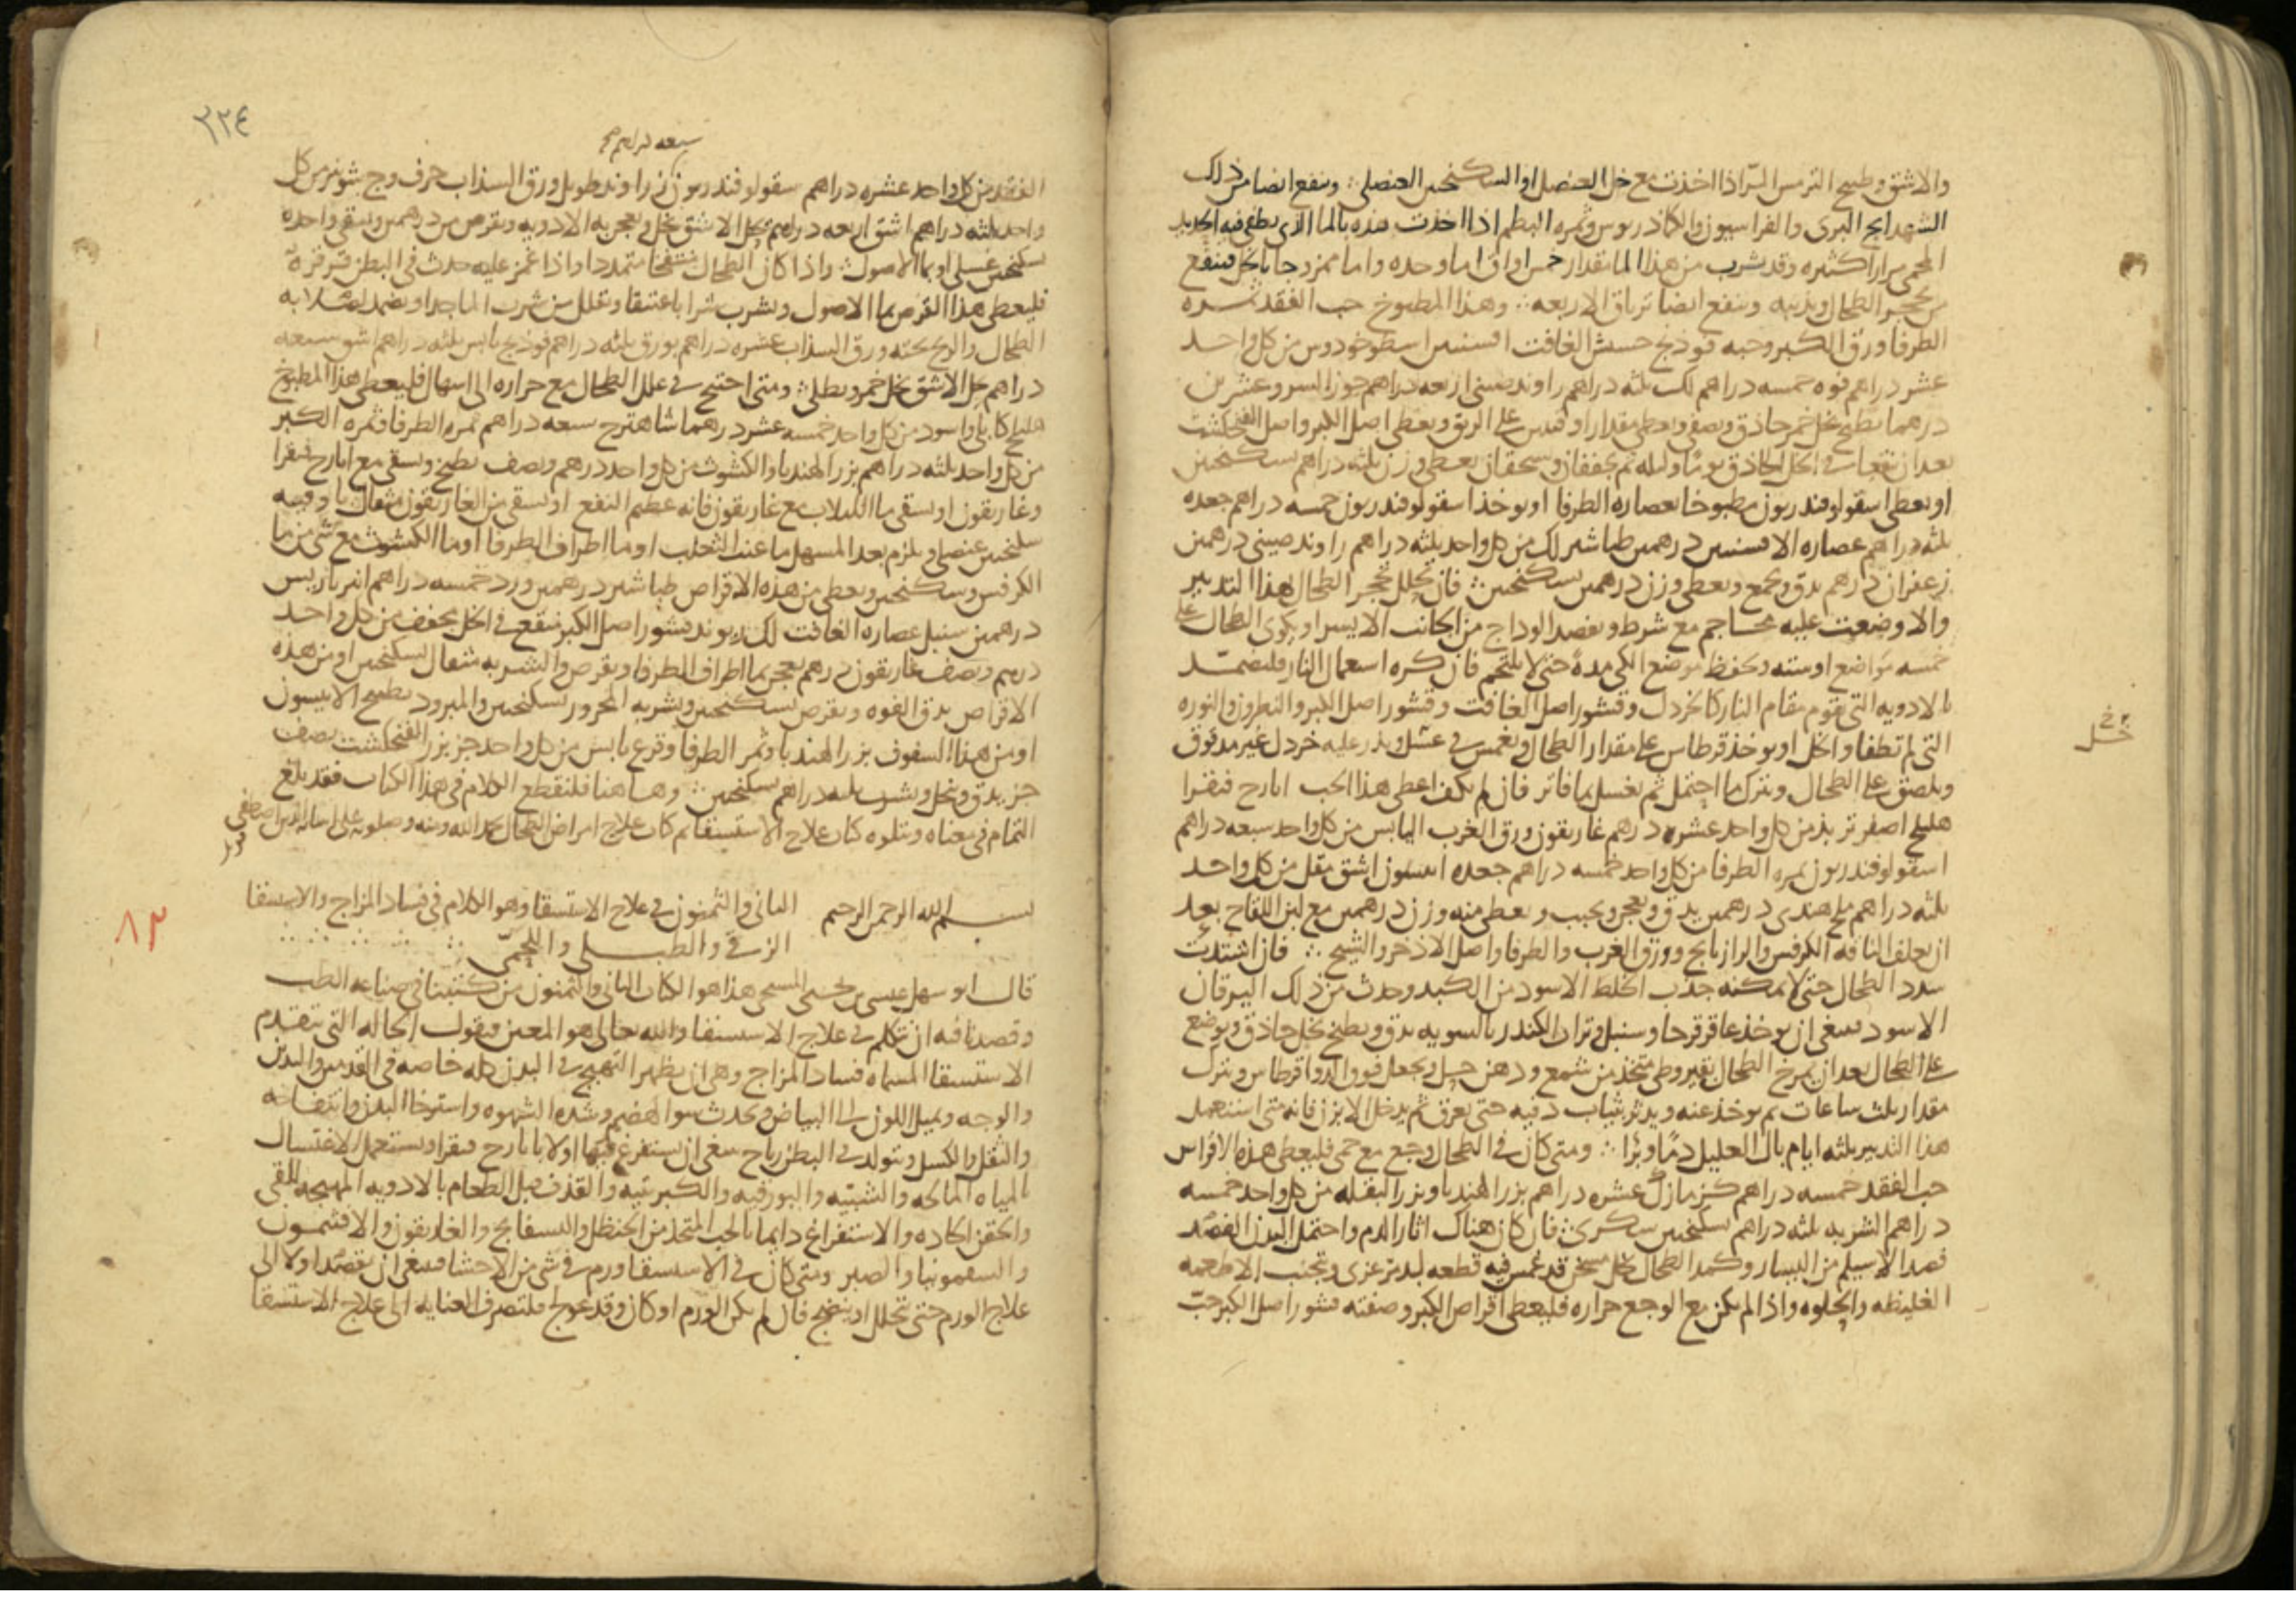 والاشق وطبيخ الترمس المر اذا اخذت مع خل العنصل او السكنجبين العنصلى وينفع ايضا من ذلك
الشهدانج البرى والفراسيون والكمادريوس وثمره البطم اذا اخذت هذه بالما الذى يطفى فيه الحديد
المحمى مرارا كثيره وقد يشرب من هذا الما مقدار خمس اواق اما وحده واما ممزوجا بالخل فينفع
من تحجر الطحال ويذيبه وينفع ايضا ترياق الاربعه وهذا المطبوخ حب الفقد ثمره
الطرفا ورق الكبر وحبه فوذنج حشيش الغافت افسنتين اسطوخودوس من كل واحد
عشره دراهم فوه خمسه دراهم لك ثلثه دراهم راوند صينى اربعه دراهم جوز السرو عشرين
درهما يطبخ بخل خمر حاذق ويصفى ويعطى مقدار اوقيتين على الريق ويعطى اصل الكبر واصل الفنجنكشت
بعد ان ينقعا فى الخل الحاذق يوما وليله ثم يجففان ويسحقان يعطى وزن ثلثه دراهم بسكنجبين
او يعطى اسقولوفندريون مطبوخا بعصاره الطرفا او يوخذ اسقولوفندريون خمسه دراهم جعده
ثلثه دراهم عصاره الافسنتين درهمين طباشير لك من كل واحد ثلثه دراهم راوند صينى درهمين
زعفران درهم يدق ويجمع ويعطى وزن درهمين بسكنجبين فان تحلل تحجر الطحال بهذا التدبير
والا وضعت عليه محاجم مع شرط ويفصد الوداج من الجانب الايسر او يكوى الطحال على
خمسه مواضع او سته ويحفظ موضع الكى مدة حتى لا يلتحم فان كره استعمال النار فليضمد
بالادويه التى تقوم مقام النار كالخردل وقشور اصل الغافت وقشور اصل الكبر والنطرون والنوره
التى لم تطفا والخل او يوخذ قرطاس على مقدار الطحال ويغمس فى عسل ويذر عليه خردل غير مدقوق
خل
ويلصق على الطحال ويترك ما احتمل ثم يغسل بما فاتر فان لم يكف اعطى هذا الحب ايارج فيقرا
هليلج اصفر تربذ من كل واحد عشره درهم غاريقون ورق الغرب اليابس من كل واحد سبعه دراهم
اسقولوفندريون ثمره الطرفا من كل واحد خمسه دراهم جعده انيسون اشق مقل من كل واحد
ثلثه دراهم ملح هندى درهمين يدق ويعجن ويحبب ويعطى منه وزن درهمين مع لبن اللقاح بعد
ان يعلف الناقه الكرفس والرازيانج وورق الغرب والطرفا واصل الاذخر والشيح فان اشتدت
سدد الطحال حتى لا يمكنه جذب الخلط الاسود من الكبد وحدث من ذلك اليرقان
الاسود فينبغى ان يوخذ عاقرقرحا وسنبل وتراب الكندر بالسويه يدق ويطبخ بخل حاذق ويوضع
على الطحال بعد ان يمرخ الطحال بقيروطى متخذ من شمع ودهن خل ويجعل فوق الدوا قرطاس ويترك
مقدار ثلث ساعات ثم يوخذ عنه ويدثر بثياب دفيه حتى يعرق ثم يدخل الابزن فانه متى استعمل
هذا التدبير ثلثه ايام بال العليل دما وبرا ومتى كان فى الطحال وجع مع حمى فليعطى هذه الاقراص
حب الفقد خمسه دراهم كزمازك عشره دراهم بزر الهندبا وبزر البقله من كل واحد خمسه
دراهم الشربه ثلثه دراهم بسكنجبين سكرى فان كان هناك اثار الدم واحتمل البدن الفصد
فصد الاسيلم من اليسار وكمد الطحال بخل مسخن قد غمس فيه قطعه لبد مرعزى ويجتنب الاطعمه
الغليظه والحلوه واذا لم يكن مع الوجع حراره فليعطى اقراص الكبر وصفته قشور اصل الكبر حب
٢٢٤
سبعه دراهم
الفقد من كل واحد عشره دراهم سقولوفندريون زراوند طويل ورق السذاب حرف وج شونيز من كل
واحد ثلثه دراهم اشق اربعه دراهم يحل الاشق بخل ويعجن به الادويه ويقرص من درهمين ويسقى واحده
بسكنجبين عسلى او بما الاصول واذا كان الطحال منتفخا متمددا واذا غمز عليه حدث فى البطن قرقرة
فليعطى هذا القرص بما الاصول ويشرب شرابا عتيقا ويقلل من شرب الما جدا ويضمد لصلابه
الطحال والريح تحته ورق السذاب عشره دراهم بورق ثلثه دراهم فوذنج يابس ثلثه دراهم اشق سبعه
دراهم حل الاشق بخل خمر ويطلى ومتى احتيج فى علل الطحال مع حراره الى اسهال فليعطى هذا المطبوخ
هليلج كابلى واسود من كل واحد خمسه عشر درهما شاهترج سبعه دراهم ثمره الطرفا وثمره الكبر
من كل واحد ثلثه دراهم بزر الهندبا والكشوث من كل واحد درهم ونصف يطبخ ويسقى مع ايارج فيقرا
وغاريقون او يسقى ما اللبلاب مع غاريقون فانه عظيم النفع او يسقى من الغاريقون مثقال باوقيه
سكنجبين عنصلى ويلزم بعد المسهل ما عنب الثعلب او ما اطراف الطرفا او ما الكشوث مع شى من ما
الكرفس وسكنجبين ويعطى من هذه الاقراص طباشير درهمين ورد خمسه دراهم انبرباريس
درهمين سنبل عصاره الغافت لك ريوند قشور اصل الكبر منقع فى الخل مجفف من كل واحد
درهم ونصف غاريقون درهم يعجن بما اطراف الطرفا ويقرص والشربه مثقال بسكنجبين او من هذه
الاقراص يدق الفوه ويقرص بسكنجبين ويشربه المحرور بسكنجبين والمبرود بطبيخ الانيسون
او من هذا السفوف بزر الهندبا وثمر الطرفا وقرع يابس من كل واحد جز بزر الفنجنكشت نصف
جز يدق وينخل ويشرب ثلثه دراهم بسكنجبين وهاهنا فلنقطع الكلام فى هذا الكتاب فقد بلغ
التمام فى معناه ويتلوه كتاب علاج الاستسقا تم كتاب علاج امراض الطحال بحمد الله ومنه وصلوته على انبيائه الذين اصطفى
بسم الله الرحمن الرحيم الثانى والثمنون فى علاج الاستسقا وهو الكلام فى فساد المزاج والاستسقا
٨٢
الزقى والطبلى واللحمى
قال ابو سهل عيسى بن يحيى المسيحى هذا هو الكتاب الثانى والثمنون من كتبنا فى صناعه الطب
وقصدنا فيه ان نتكلم فى علاج الاستسقا والله تعالى هو المعين فنقول الحاله التى تتقدم
الاستسقا المسماه فساد المزاج وهى ان يظهر التهبج فى البدن كله خاصه فى القدمين واليدين
والوجه ويميل اللون الى البياض ويحدث سو الهضم وشده الشهوه واسترخا البدن وانتفاخه
والثقل والكسل ويتولد فى البطن رياح ينبغى ان يستفرغ فيها اولا بايارج فيقرا ويستعمل الاغتسال
بالمياه المالحه والشبيه والبورقيه والكبريتيه والقذف قبل الطعام بالادويه المهيجه للقى
والحقن الحاده والاستفراغ دايما بالحب المتخذ من الحنظل والبسفايج والغاريقون والافثيمون
والسقمونيا والصبر ومتى كان فى الاستسقا ورم فى شى من الاحشا فينبغى ان يقصد اولا الى
علاج الورم حتى يتحلل او ينضج فان لم يكن الورم او كان وقد عولج فلتصرف العنايه الى علاج الاستسقا